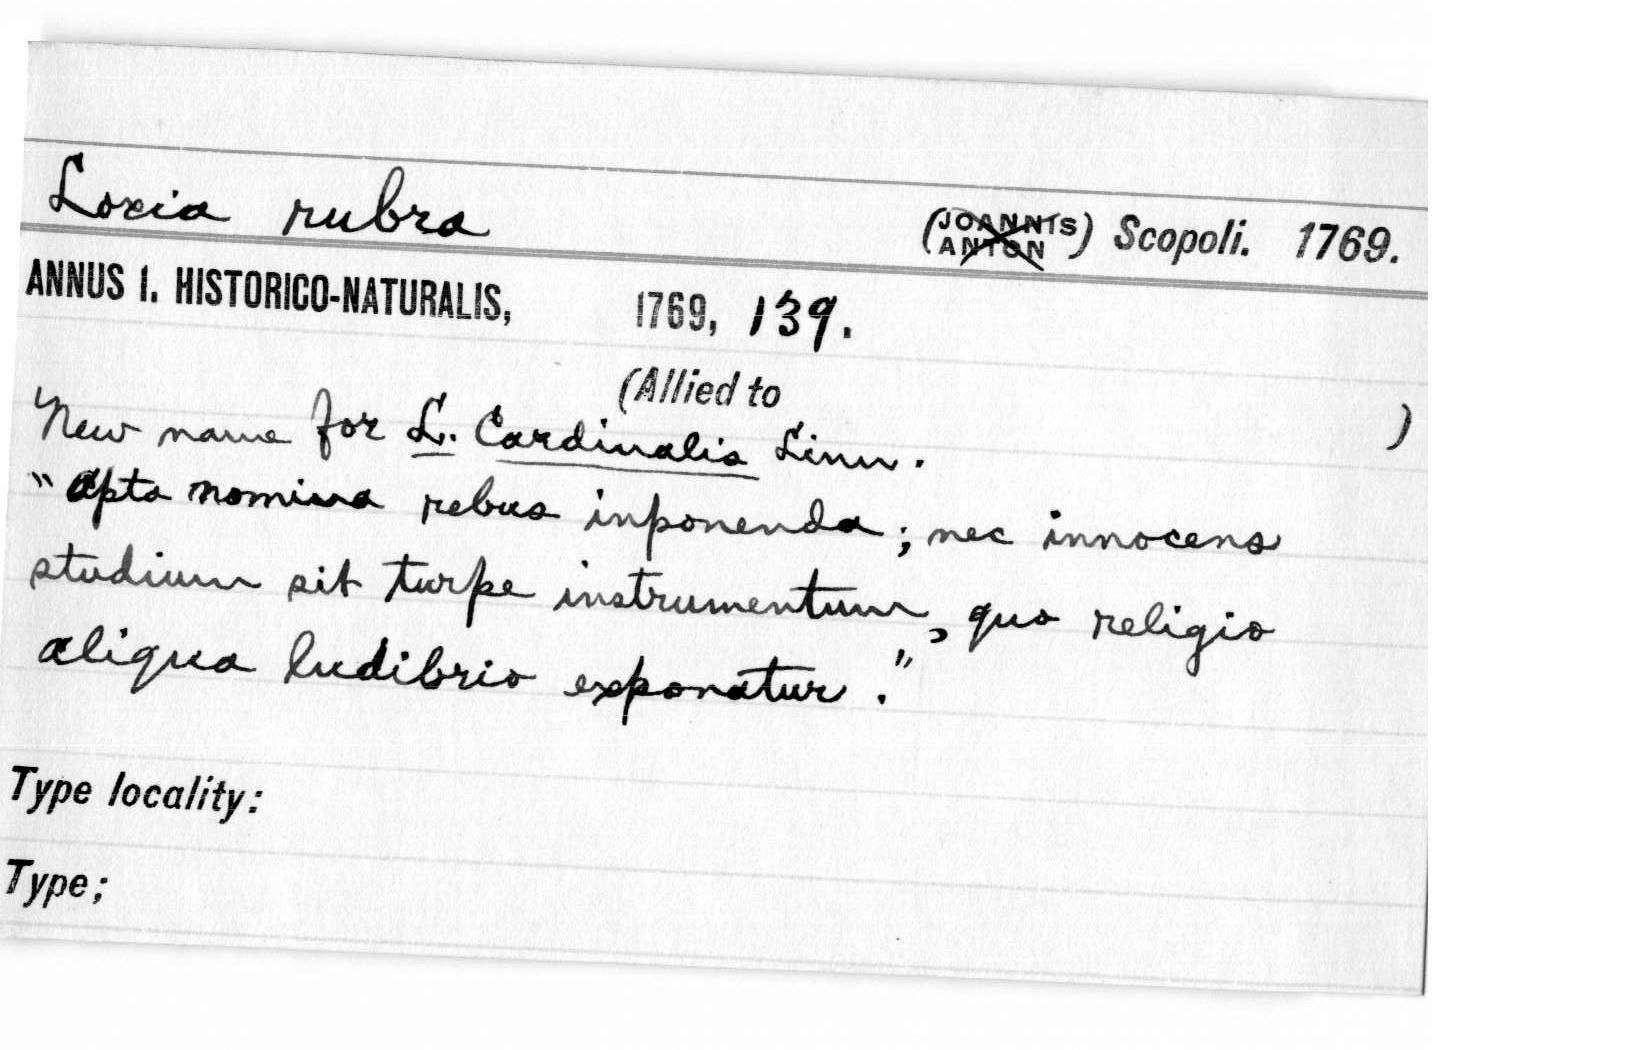 Loxia rubra (JOANNIS ANTON) Scopoli. 1769.
ANNUS I. HISTORICO-NATURALIS, 1769, 139.
(Allied to )
New name for L. Cardinalis Linn.
"apta nomina rebus inponenda; nec innocens
studium sit turpe instrumentum, quo religio
aliqua ludibrio exponatur."
Type locality:
Type;